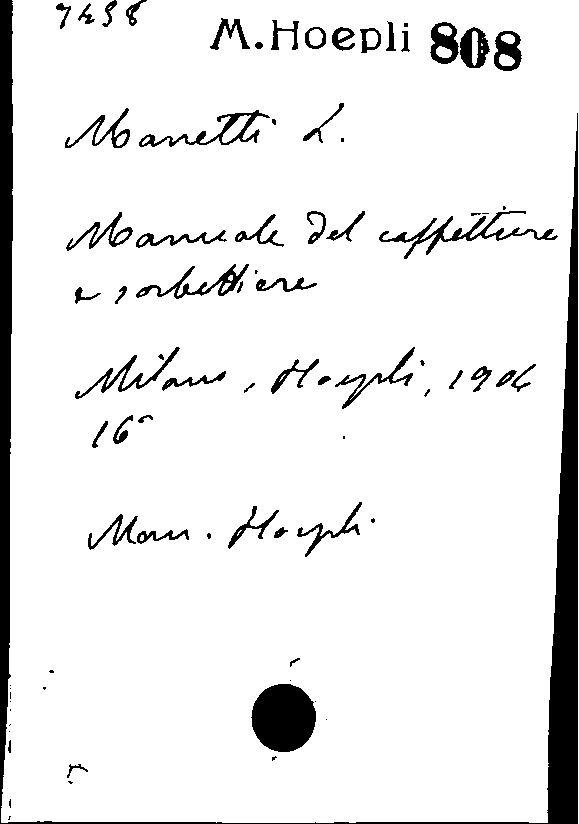 7438
M. Hoepli 808
Manetti L.
Manuale del caffettiere
e sorbettiere
Milano, Hoepli, 1906
16°
Man. Hoepli